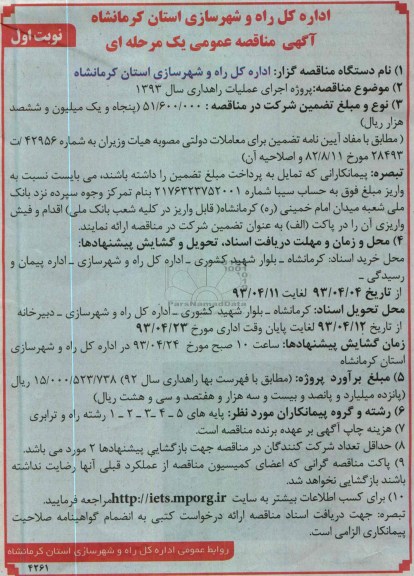 اداره کل راه و شهرسازی استان کرمانشاه
آگهی مناقصه عمومی یک مرحله ای
نوبت اول
۱) نام دستگاه مناقصه گزار: اداره کل راه و شهرسازی استان کرمانشاه
۲) موضوع مناقصه:پروژه اجرای عملیات راهداری سال ۱۳۹۳
۳) نوع و مبلغ تضمین شرکت در مناقصه : ۵۱/۶۰۰/۰۰۰ (پنجاه و یک میلیون و ششصد
هزار ریال)
(مطابق با مفاد آیین نامه تضمین برای معاملات دولتی مصوبه هیات وزیران به شماره ۴۲۹۵۶/ت
۲۸۴۹۳ مورخ ۸۲/۸/۱۱ و اصلاحیه آن)
تبصره: پیمانکارانی که تمایل به پرداخت مبلغ تضمین را داشته باشند، می بایست نسبت به
واریز مبلغ فوق به حساب سیبا شماره ۲۱۷۶۳۲۳۷۵۲۰۰۱ بنام تمرکز وجوه سپرده نزد بانک
ملی شعبه میدان امام خمینی (ره) کرمانشاه( قابل واریز در کلیه شعب بانک ملی) اقدام و فیش
واریزی آن را در پاکت (الف) به عنوان تضمین شرکت در مناقصه ارائه نمایند.
۴) محل و زمان و مهلت دریافت اسناد، تحویل و گشایش پیشنهادها:
محل خرید اسناد: کرمانشاه ـ بلوار شهید کشوری ـ اداره کل راه و شهرسازی ـ اداره پیمان و
رسیدگی ـ
از تاریخ ۹۳/۰۴/۰۴ لغایت ۹۳/۰۴/۱۱
محل تحویل اسناد: کرمانشاه ـ بلوار شهید کشوری ـ اداره کل راه و شهرسازی ـ دبیرخانه
از تاریخ ۹۳/۰۴/۱۲ لغایت پایان وقت اداری مورخ ۹۳/۰۴/۲۳
زمان گشایش پیشنهادها: ساعت ۱۰ صبح مورخ ۹۳/۰۴/۲۴ در اداره کل راه و شهرسازی
استان کرمانشاه
۵) مبلغ برآورد پروژه: (مطابق با فهرست بها راهداری سال ۹۲) ۱۵/۰۰۰/۵۲۳/۷۳۸ ریال
(پانزده میلیارد و پانصد و بیست و سه هزار و هفتصد و سی و هشت ریال)
۶) رشته و گروه پیمانکاران مورد نظر: پایه های ۵ ـ ۴ ـ ۳ ـ ۲ ـ ۱ رشته راه و ترابری
۷) هزینه چاپ آگهی بر عهده برنده مناقصه است.
۸) حداقل تعداد شرکت کنندگان در مناقصه جهت بازگشایی پیشنهادها ۲ مورد می باشد.
۹) پاکت مناقصه گرانی که اعضای کمیسیون مناقصه از عملکرد قبلی آنها رضایت نداشته
باشند بازگشایی نخواهد شد.
۱۰) برای کسب اطلاعات بیشتر به سایت http://iets.mporg.ir مراجعه فرمایید.
تبصره: جهت دریافت اسناد مناقصه ارائه درخواست کتبی به انضمام گواهینامه صلاحیت
پیمانکاری الزامی است.
روابط عمومی اداره کل راه و شهرسازی استان کرمانشاه
۴۲۶۱
ParsNamadData